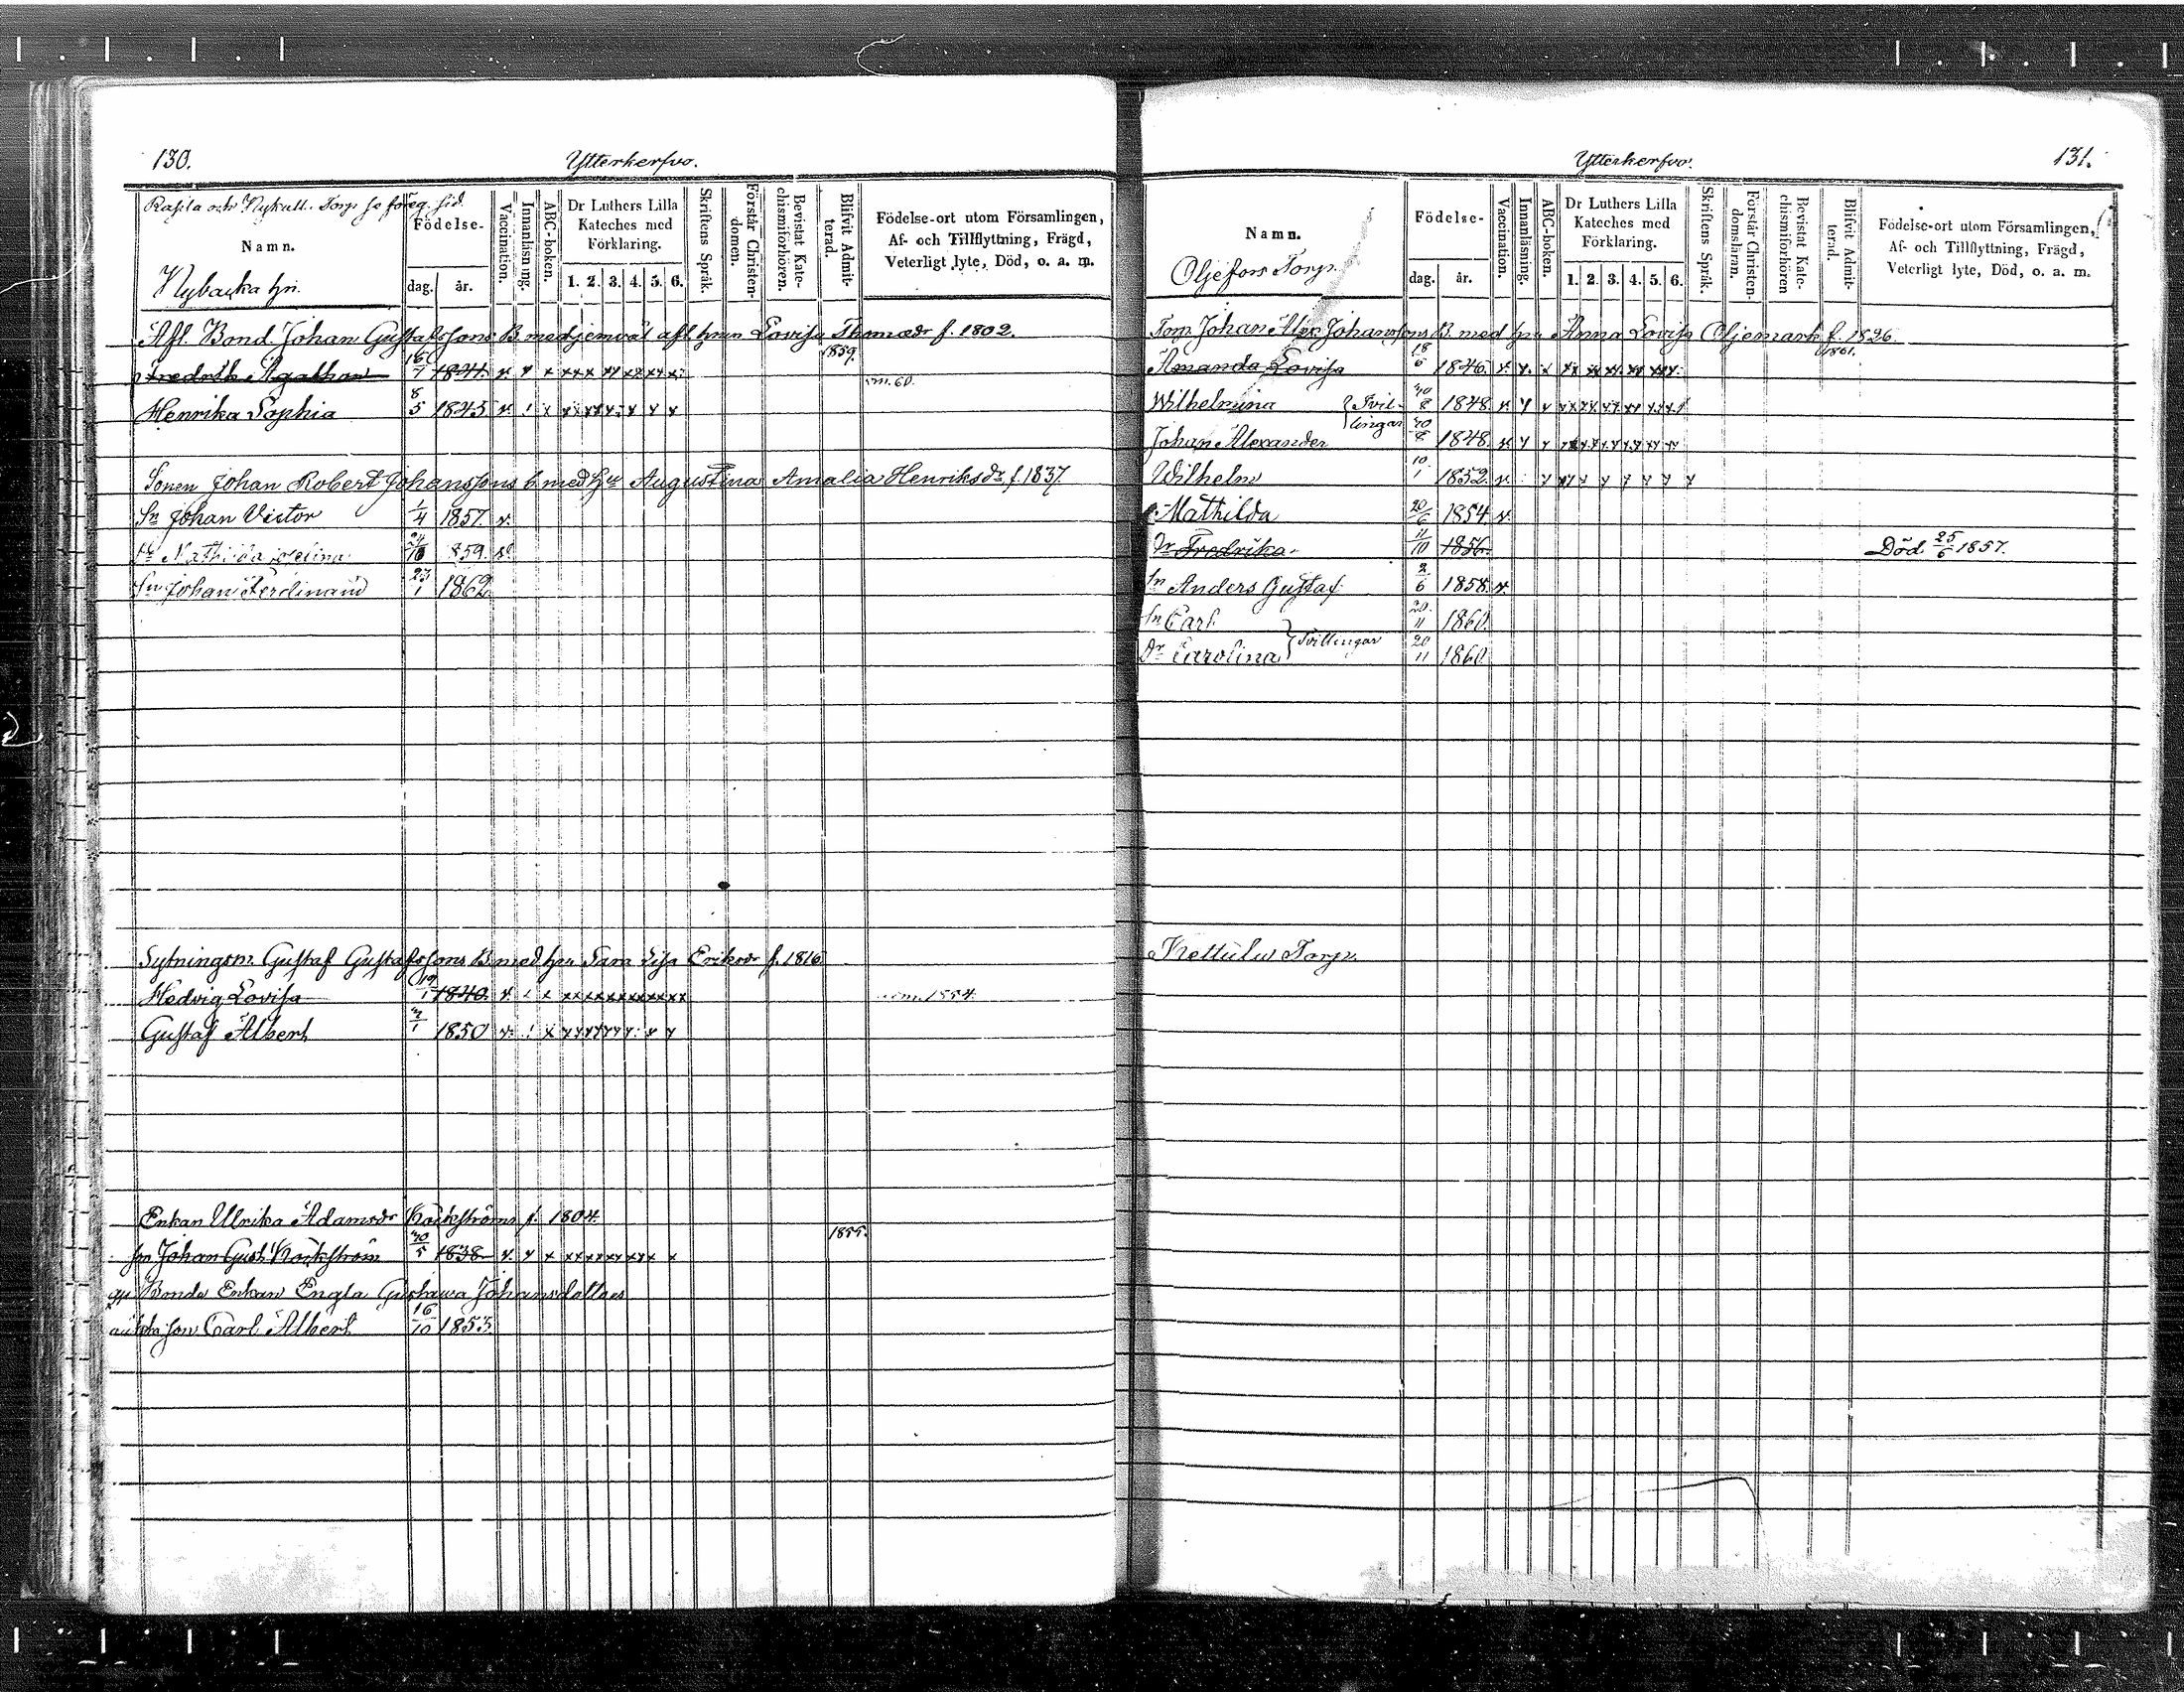 130.
Ytterkerfvo.
Rasila och Nykull. Torp se föreg. sid.
Namn.
Nybacka hn.
Födelse-
dag.
år.
Vaccination.
Innanläsning.
ABC-boken.
Dr Luthers Lilla
Kateches med
Förklaring.
1. 2. 3. 4. 5. 6.
Skriftens Språk.
Förstår Christen-
domen.
Bevistat Kate-
chismiförhören.
Blifvit Admit-
terad.
Födelse-ort utom Församlingen,
Af- och Tillflyttning, Frägd,
Veterligt lyte, Död, o. a. m.
Afl. Bond. Johan Gustafssons B. med jemväl afl. hrun Lovisa Thomædr f. 1802.
Fredrik Agathon 1841. v. x x xxx xx xx xx x 1859.
Henrika Sophia 8/5 1843 v. x
Sonen Johan Robert Johanssons b. med hu Augustina Amalia Henriksdr f. 1837.
Sn Johan Victor 1/4 1857. v.
Dr Mathilda 24/10 859. v.
Sn Johan Ferdinand 23/1 1862.
Sytningsm. Gustaf Gustafssons B. med hru Sara Lisa Eriksdr f. 1816
Hedvig Lovisa 1840. v.
Gustaf Albert 1850 v.
Enkan Ulrika Adamsdr f. 1804.
sn Johan Gust. 30/5 1838 v. 1855.
Bonde Enkan Engla Gustawa Johansdotters
son Carl Albert 16/10 1853
Ytterkerfvo.
131.
Namn.
Oljefors Torp.
Födelse-
dag.
år.
Vaccination.
Innanläsning.
ABC-boken.
Dr Luthers Lilla
Kateches med
Förklaring.
1. 2. 3. 4. 5. 6.
Skriftens Språk.
Förstår Christen-
domsläran.
Bevistat Kate-
chismiförhören
Blifvit Admit-
terad.
Födelse-ort utom Församlingen,
Af- och Tillflyttning, Frägd,
Veterligt lyte, Död, o. a. m.
Torp. Johan Alex. Johanssons B. med hru Anna Lovisa Oljemark f. 1826.
Amanda Lovisa 18/6 1846. v. 1861.
Wilhelmina } Tvil- 30/8 1848. v.
Johan Alexander } lingar 30/8 1848. v.
Wilhelm 10/1 1852. v.
Mathilda 20/6 1854 v.
Dr Fredrika 11/10 1856. Död 25/6 1857.
Sn Anders Gustaf 2/6 1858. v.
Sn Carl } Tvillingar 20/11 1860.
Dr Carolina 20/11 1860.
Kettula Torp.